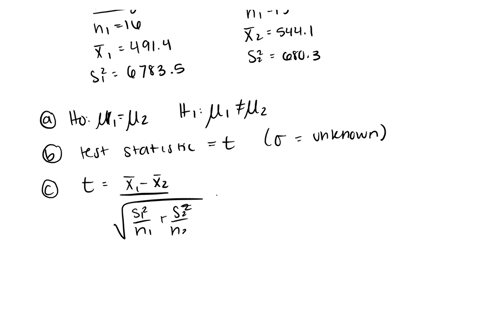 n₁ = 16
x̄₁ = 491.4
x̄₂ = 544.1
S₁² = 6783.5
S₂² = 680.3
ⓐ H₀: μ₁ = μ₂ H₁: μ₁ ≠ μ₂
ⓑ test statistic = t (σ = unknown)
ⓒ t = x̄₁ - x̄₂ / √(S₁²/n₁ + S₂²/n₂)